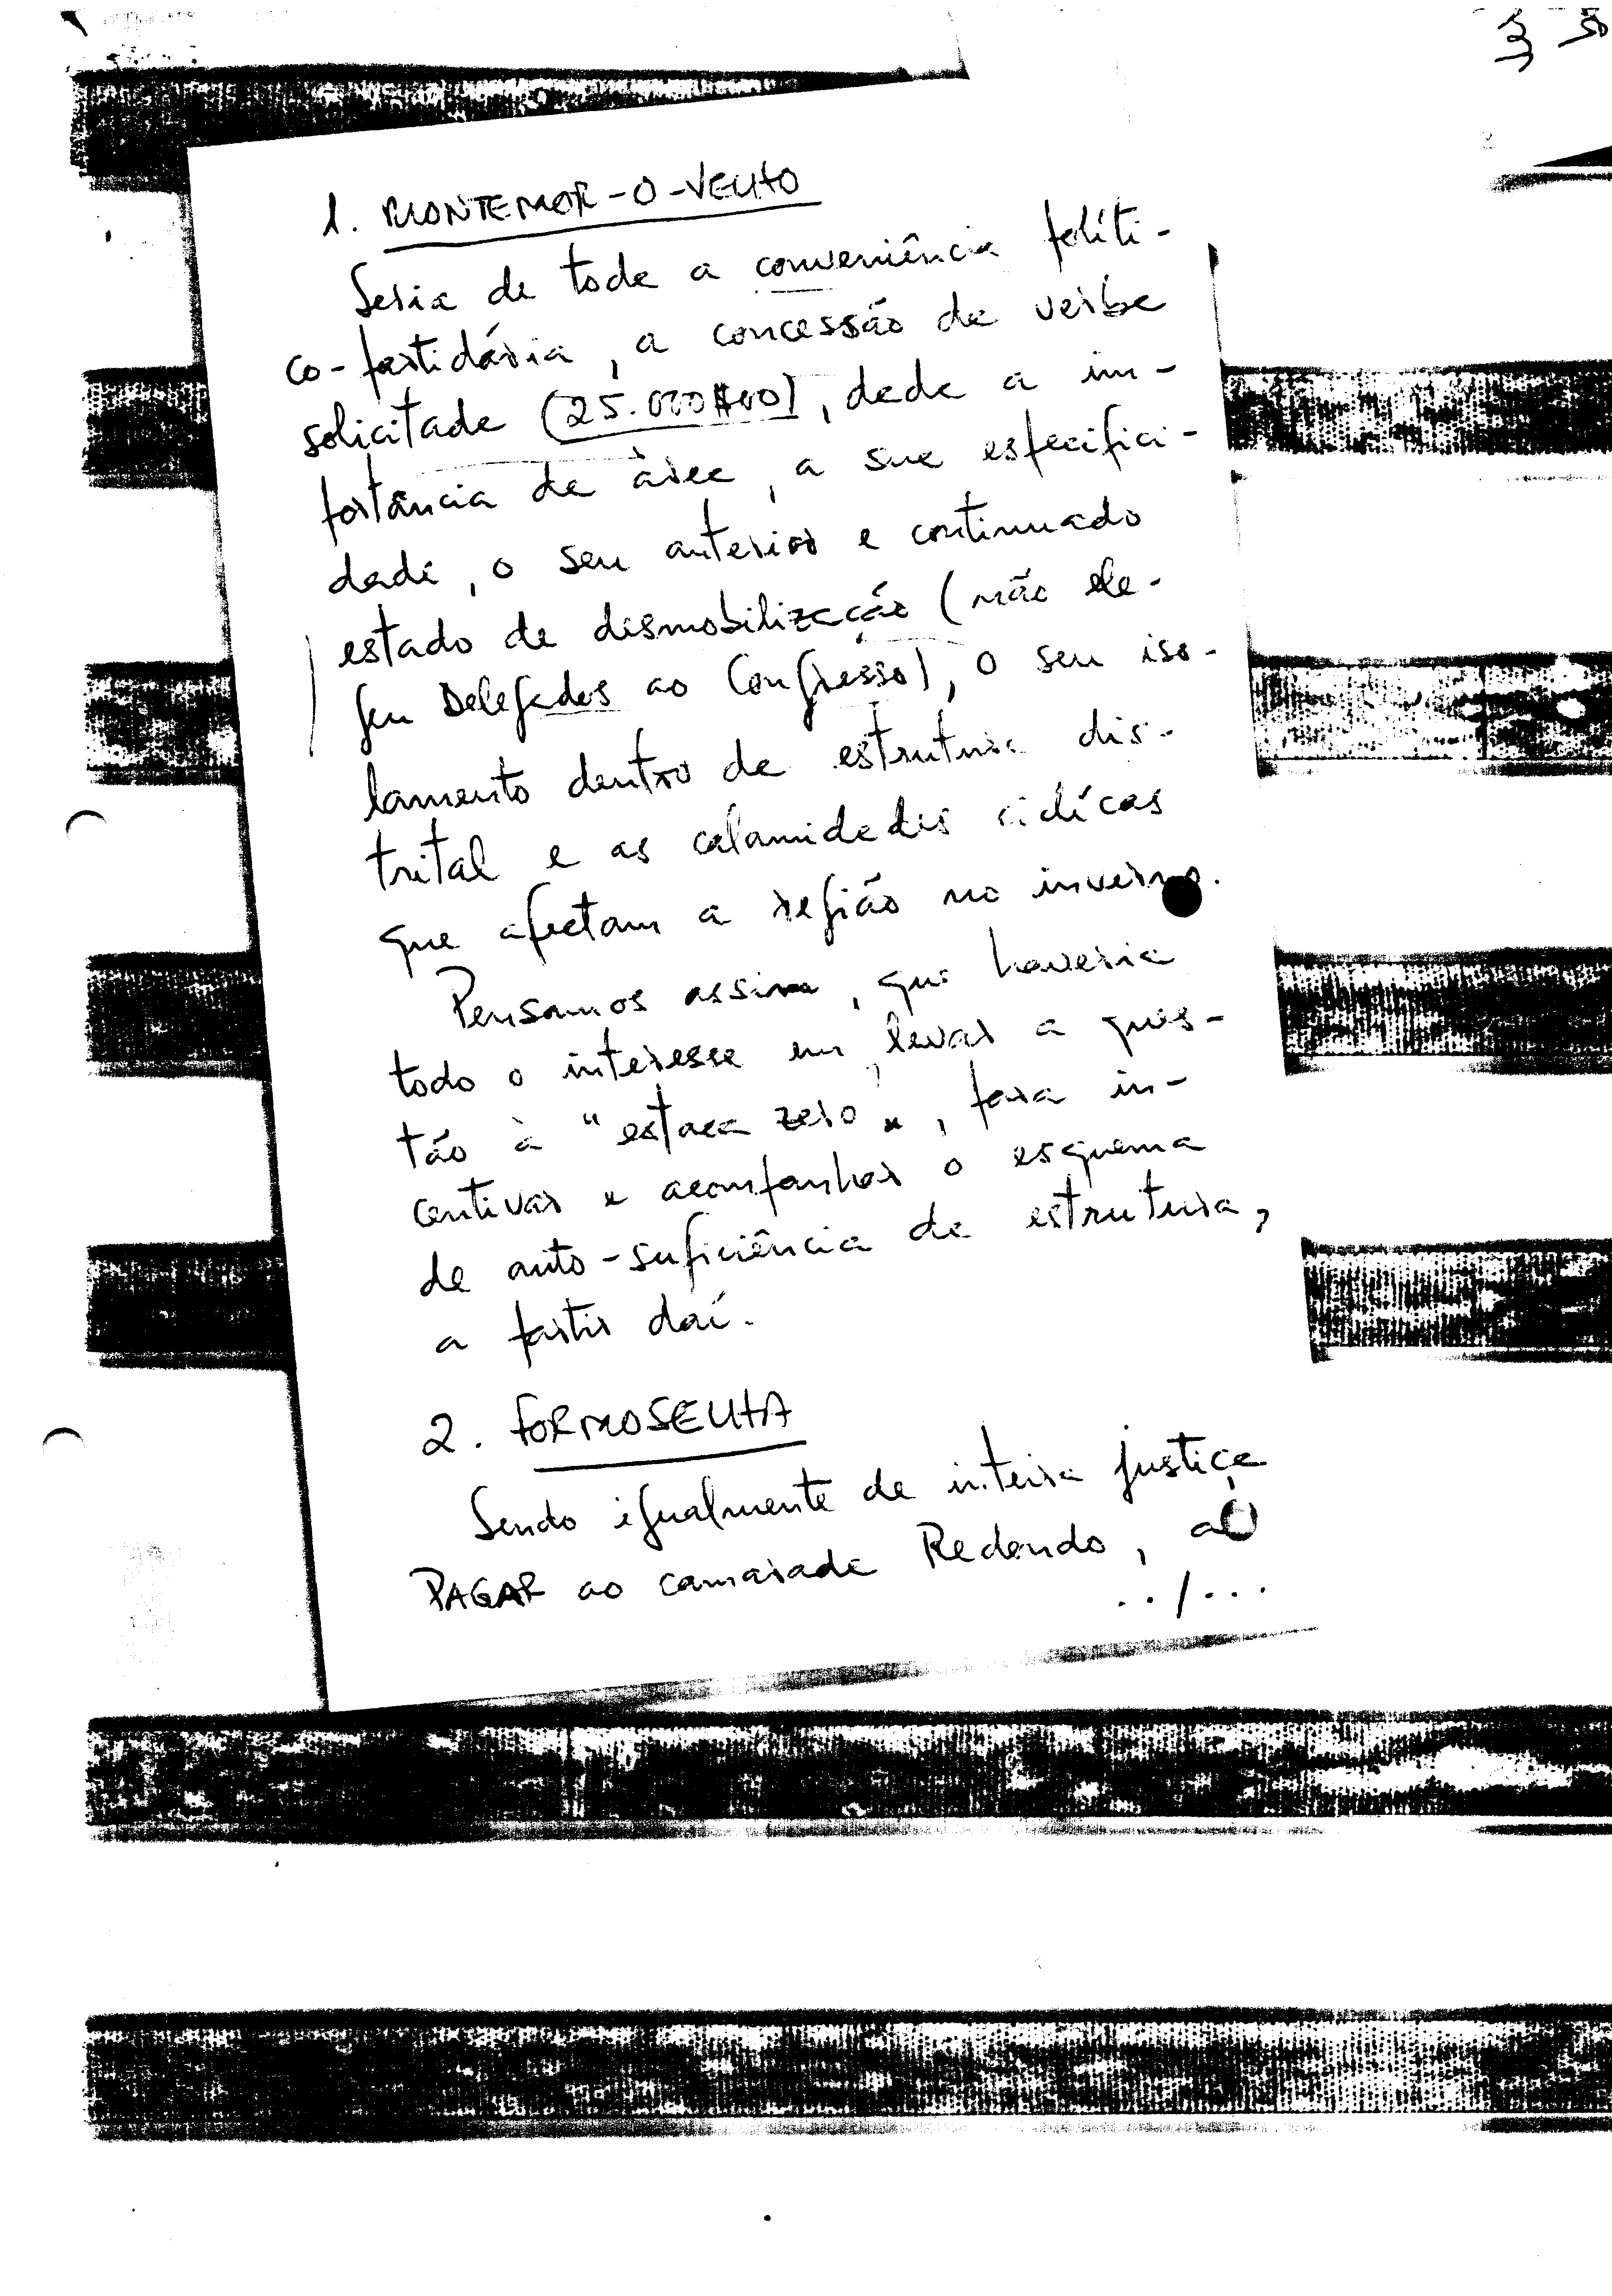 3 50
1. MONTEMOR-O-VELHO
Seria de toda a conveniência políti-
co-partidária, a concessão da verba
solicitada (25.000$00), dada a im-
portância da área, a sua especifici-
dade, o seu anterior e continuado
estado de desmobilização (não ele-
geu Delegados ao Congresso), o seu iso-
lamento dentro da estrutura dis-
trital e as calamidades cíclicas
que afectam a região no inverno.
Pensamos assim, que haveria
todo o interesse em levar a ques-
tão à "estaca zero", para in-
centivar e acompanhar o esquema
de auto-suficiência da estrutura,
a partir daí.
2. FORMOSELHA
Sendo igualmente de inteira justiça
PAGAR ao camarada Redondo, ao
../...